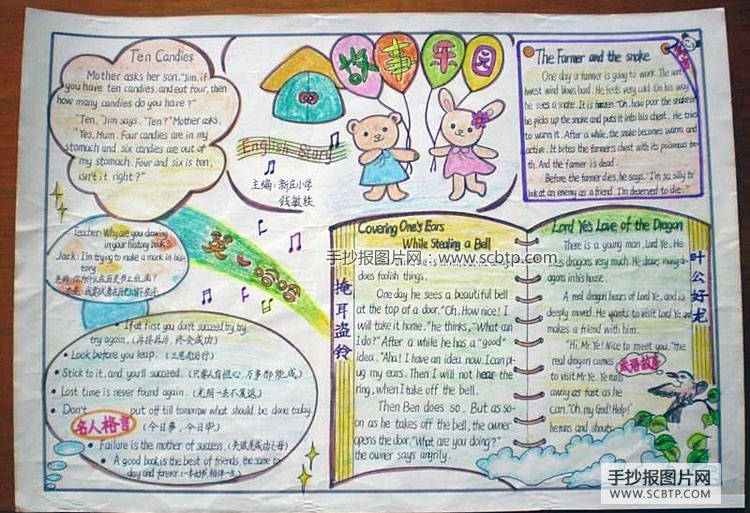 Ten Candies
Mother asks her son, "Jim, if
you have ten candies, and eat four, then
how many candies do you have?"
"Ten," Jim says. "Ten?" Mother asks.
"Yes, Mum. Four candies are in my
stomach and six candies are out of
my stomach. Four and six is ten,
isn't it right?"
故事乐园
English Story
主编: 新庄小学
钱敏枝
The Farmer and the snake
One day a farmer is going to work. The
west wind blows hard. He feels very cold. On his way
he sees a snake. It is frozen. "Oh, how poor the snake is!"
he picks up the snake and puts it into his chest. He tries
to warm it. After a while, the snake becomes warm and
active. It bites the farmer's chest with its poisonous
th. And the farmer is dead.
Before the farmer dies, he says. "I'm so silly to
look at an enemy as a friend. I'm deserved to die."
Teacher: Why are you drawing
in your history book?
Jack: I'm trying to make a mark in his-
tory.
If at first you don't succeed by by
try again. (再接再厉, 终会成功)
Look before you leap. (三思而后行)
Stick to it, and you'll succeed. (只要人有恒心, 万事都能成)
Lost time is never found again. (光阴一去不复返)
Don't put off till tomorrow what should be done today.
(今日事, 今日毕)
名人格言
Failure is the mother of success. (失败是成功之母)
A good book is the best of friends, the same to-
day and forever.
Covering One's Ears
While Stealing a Bell
掩耳盗铃
does foolish things.
One day he sees a beautiful bell
at the top of a door. "Oh, How nice! I
will take it home." he thinks, "What can
I do?" After a while he has a "good"
idea. "Aha! I have an idea now. I can pl-
ug my ears. Then I will not hear the
ring, when I take off the bell.
Then Ben does so. But as so-
on as he takes off the bell, the owner
opens the door. "What are you doing?"
the owner says angrily.
Lord Ye's Love of the Dragon
叶公好龙
There is a young man, Lord Ye. He
likes dragons very much. He draws many dr-
agons in his house.
A real dragon hears of Lord Ye, and is
deeply moved. He wants to visit Lord Ye and
makes a friend with him.
"Hi, Mr. Ye! Nice to meet you," the
real dragon comes
to visit Mr. Ye. Ye runs
away as fast as he
can. "Oh, my God! Help!"
he runs and shouts.
成语故事
手抄报图片网: www.scbtp.com
手抄报图片网
WWW.SCBTP.COM